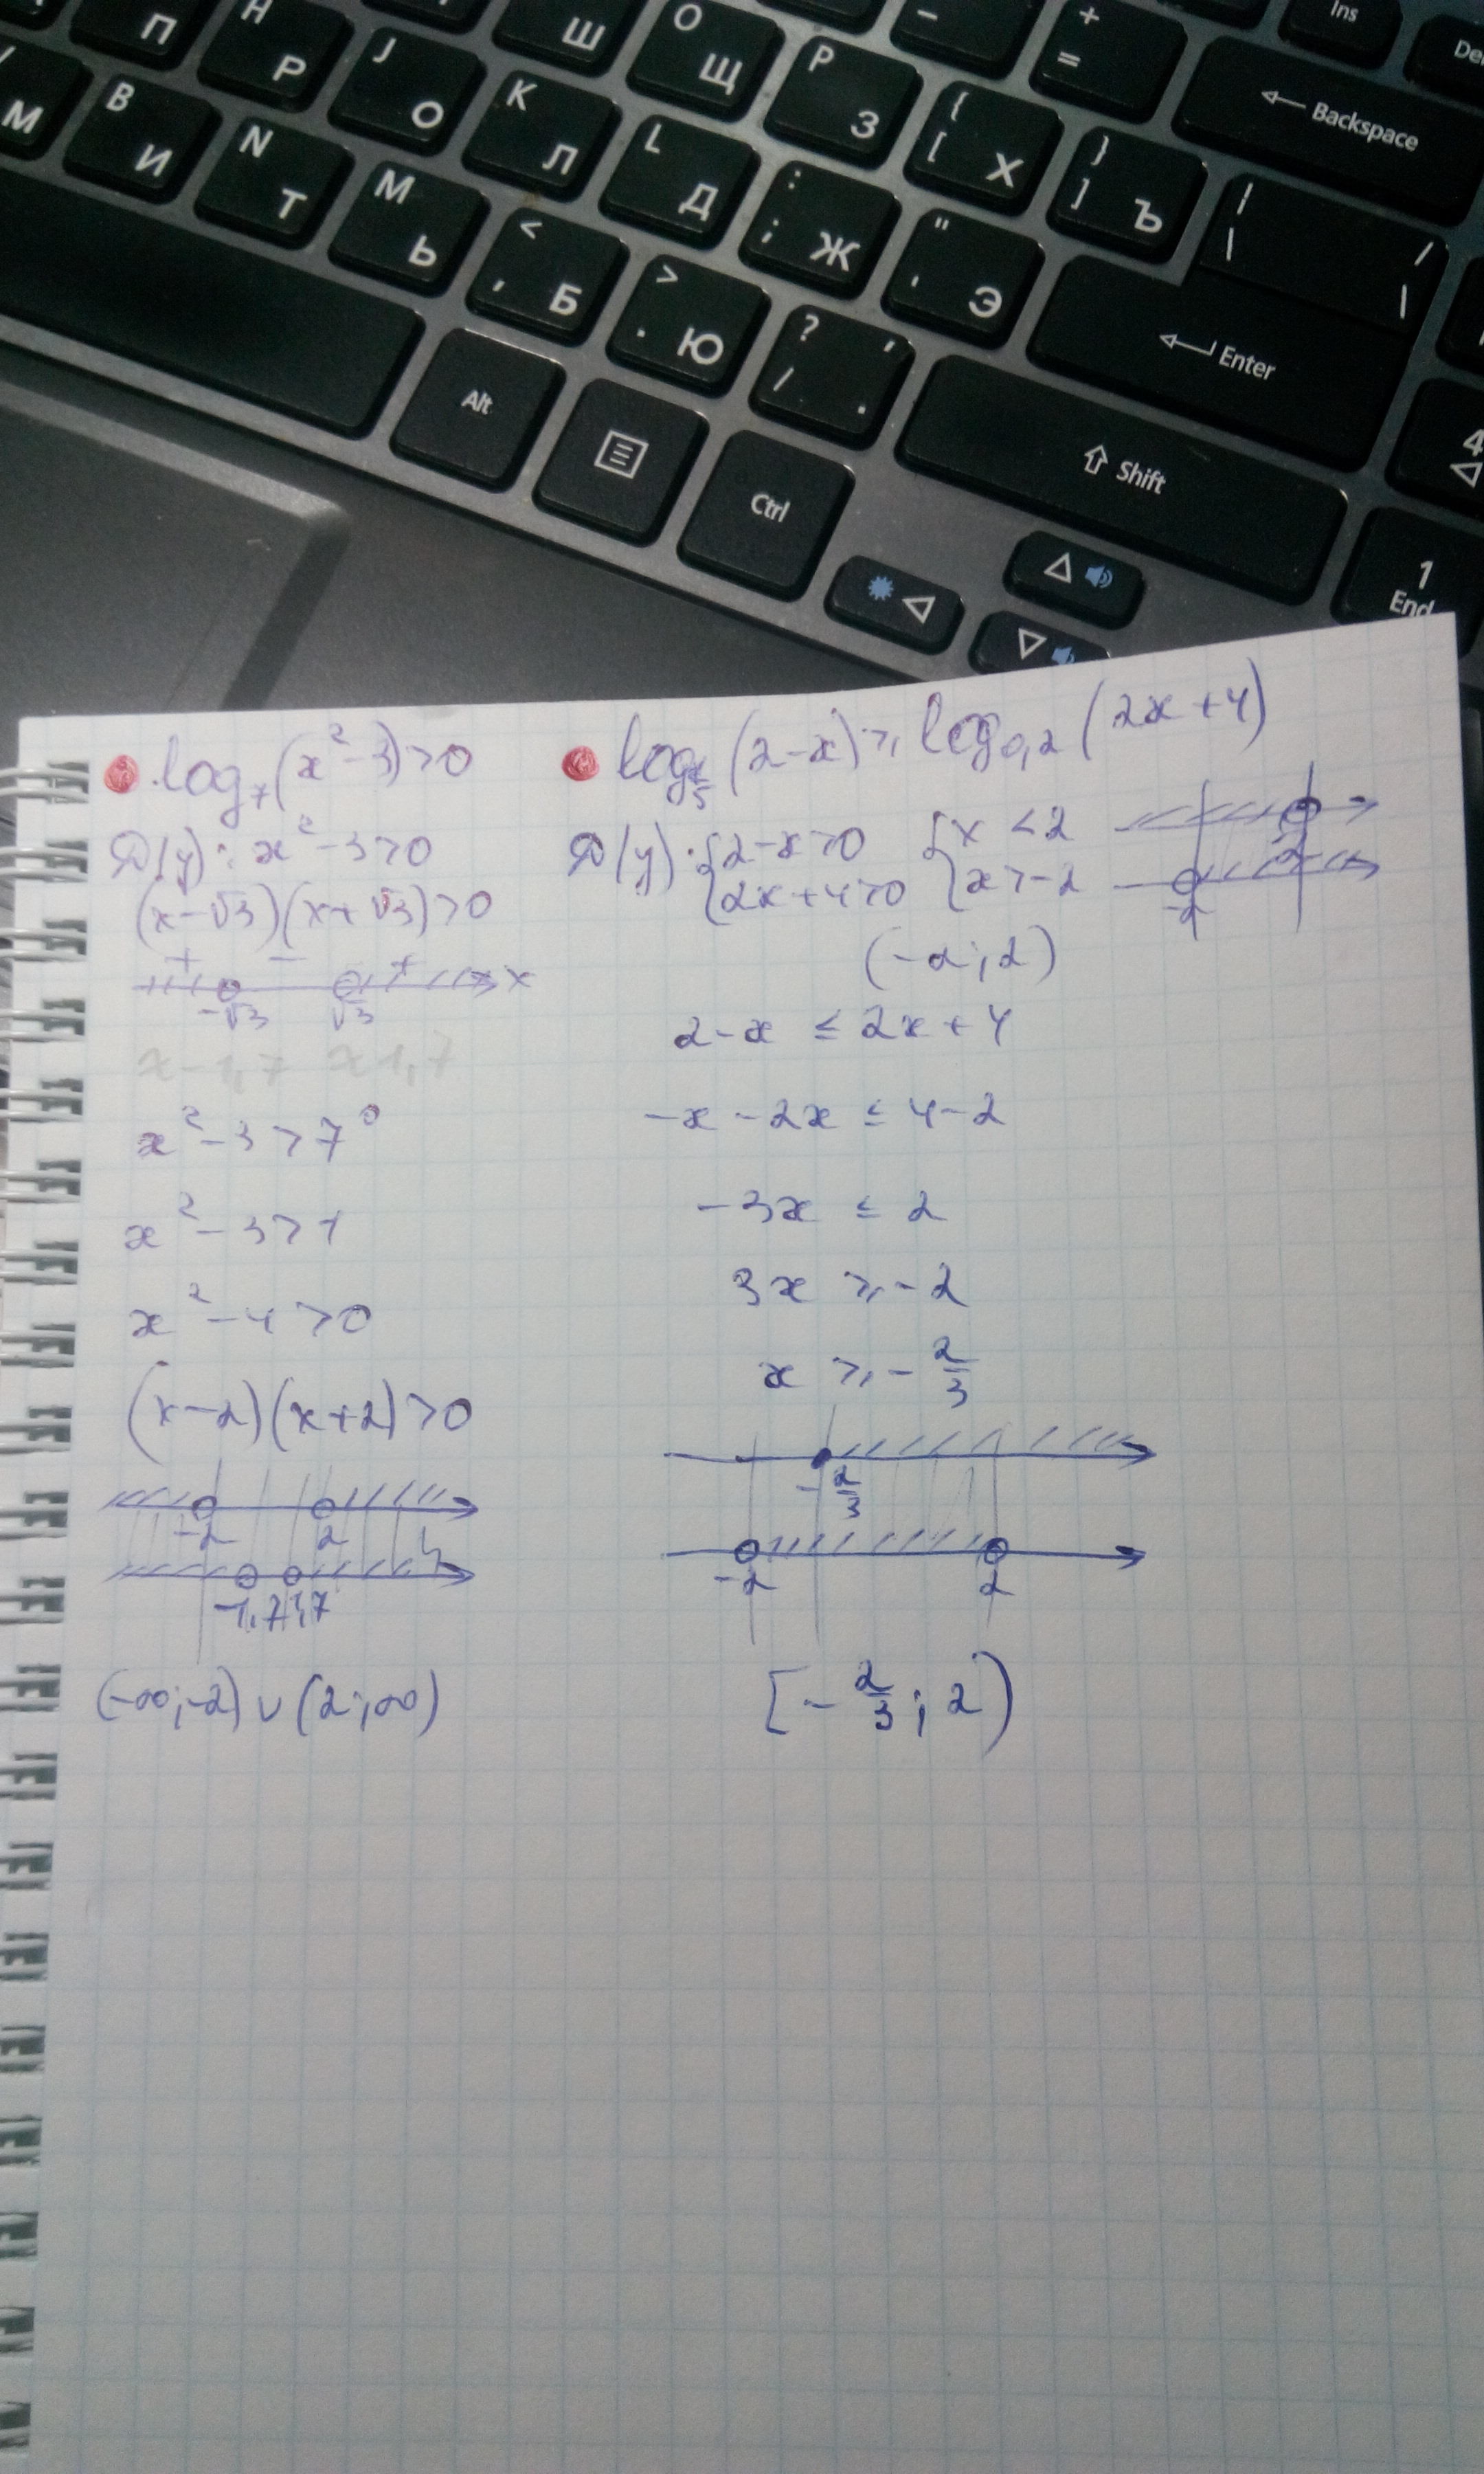 Ins
Del
П
H Р
J О
Ш
O Щ
P З
_ -
+ =
Backspace
М
B И
N Т
K Л
L Д
{ [ Х
} ] Ъ
| \
/ \
M Ь
< , Б
: ; Ж
" ' Э
Enter
> . Ю
? / , .
Alt
Ctrl
Shift
4
1 End
log₇(x²-3)>0
D(y): x²-3>0
(x-√3)(x+√3)>0
+ - +
-√3 √3 x
x-1,7 x1,7
x²-3>7⁰
x²-3>1
x²-4>0
(x-2)(x+2)>0
-2 2
-1,7 1,7
(-∞;-2)∪(2;∞)
log_{1/5}(2-x)≥log_{0,2}(2x+4)
D(y): {2-x>0 {x<2
{2x+4>0 {x>-2
2
-2
(-2;2)
2-x ≤ 2x+4
-x-2x ≤ 4-2
-3x ≤ 2
3x ≥ -2
x ≥ -2/3
-2/3
-2 2
[-2/3; 2)